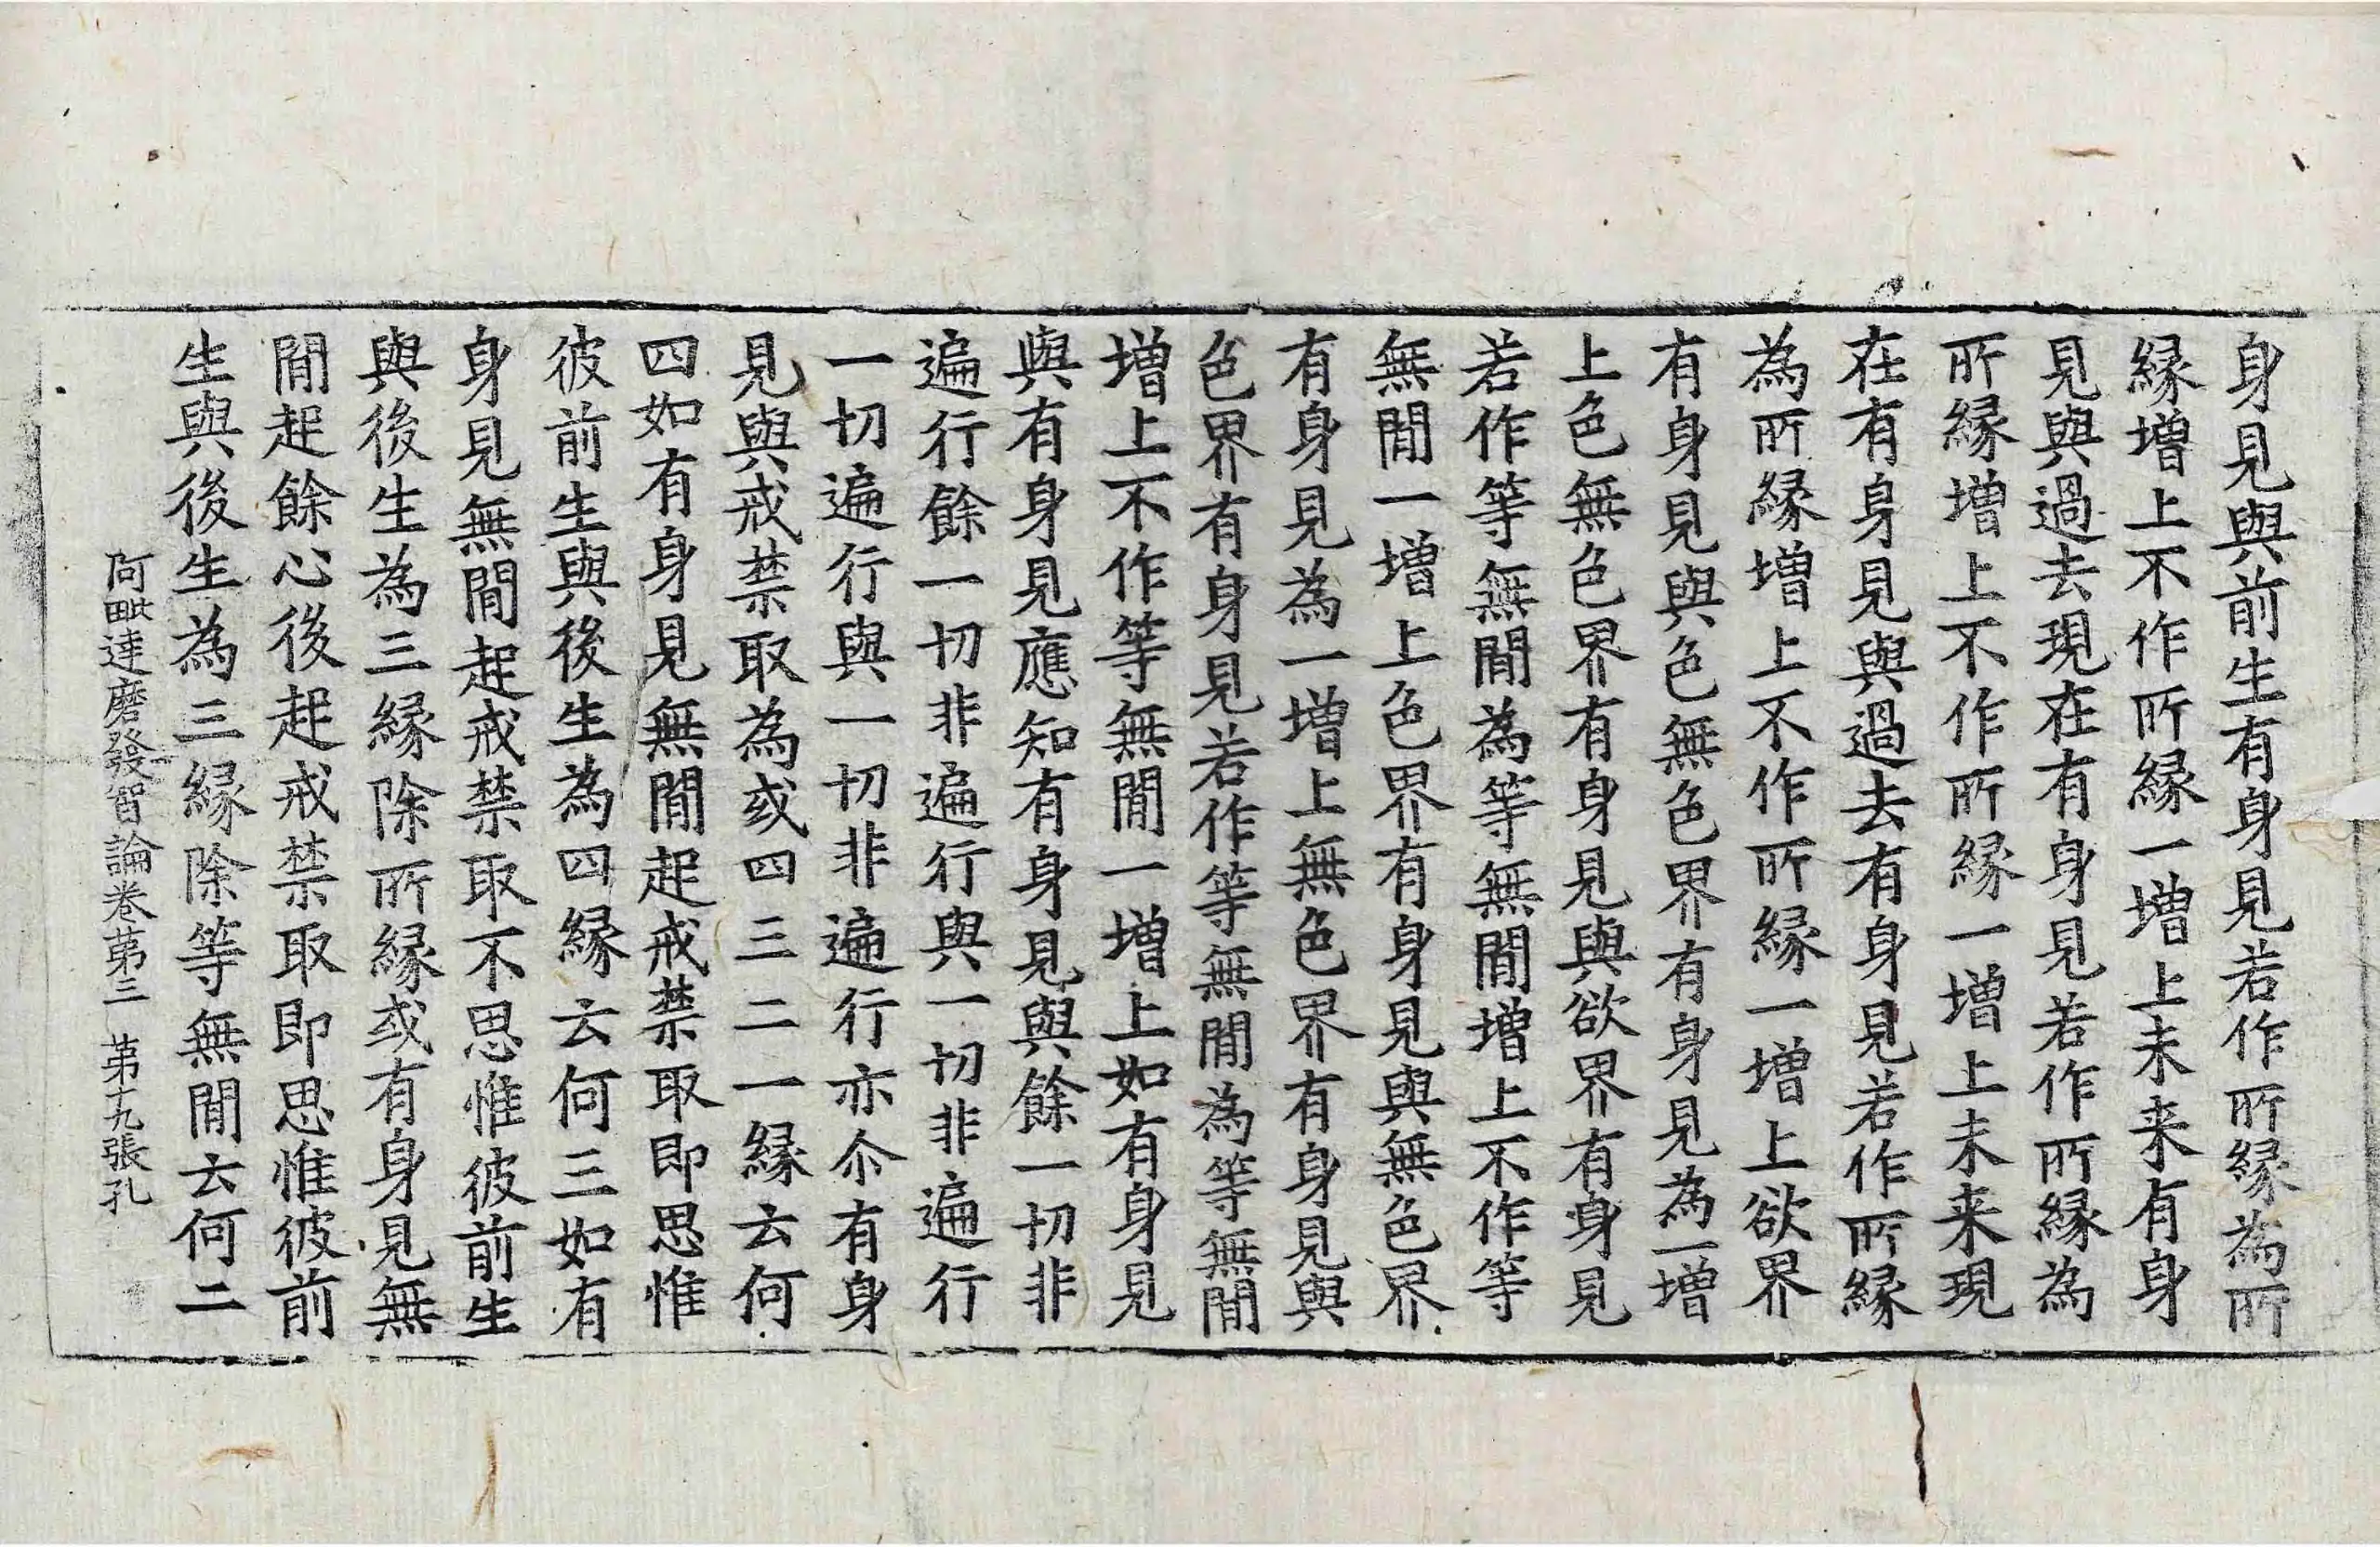 身見與前生有身見若作所縁為所
縁増上不作所縁一増上未来有身
見與過去現在有身見若作所縁為
所縁増上不作所縁一増上未来現
在有身見與過去有身見若作所縁
為所縁増上不作所縁一増上欲界
有身見與色無色界有身見為一増
上色無色界有身見與欲界有身見
若作等無閒為等無閒増上不作等
無閒一増上色界有身見與無色界
有身見為一増上無色界有身見與
色界有身見若作等無閒為等無閒
増上不作等無閒一増上如有身見
與有身見應知有身見與餘一切非
遍行餘一切非遍行與一切非遍行
一切遍行與一切非遍行亦尒有身
見與戒禁取為或四三二一縁云何
四如有身見無閒起戒禁取即思惟
彼前生與後生為四縁云何三如有
身見無閒起戒禁取不思惟彼前生
與後生為三縁除所縁或有身見無
閒起餘心後起戒禁取即思惟彼前
生與後生為三縁除等無閒云何二
阿毗達磨發智論卷苐三 苐十九張孔